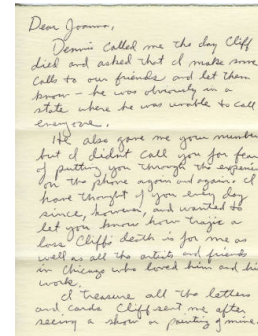 Dear Joanna,
Dennis called me the day Cliff
died and asked that I make some
calls to our friends and let them
know - he was obviously in a
state where he was unable to call
everyone.
He also gave me your number
but I didn't call you for fear
of putting you through the experience
on the phone again and again. I
have thought of you every day
since, however, and wanted to
let you know how tragic a
loss Cliff's death is for me as
well as all the artists and friends
in Chicago who loved him and his
work.
I treasure all the letters
and cards Cliff sent me after
seeing a show or painting of mine.